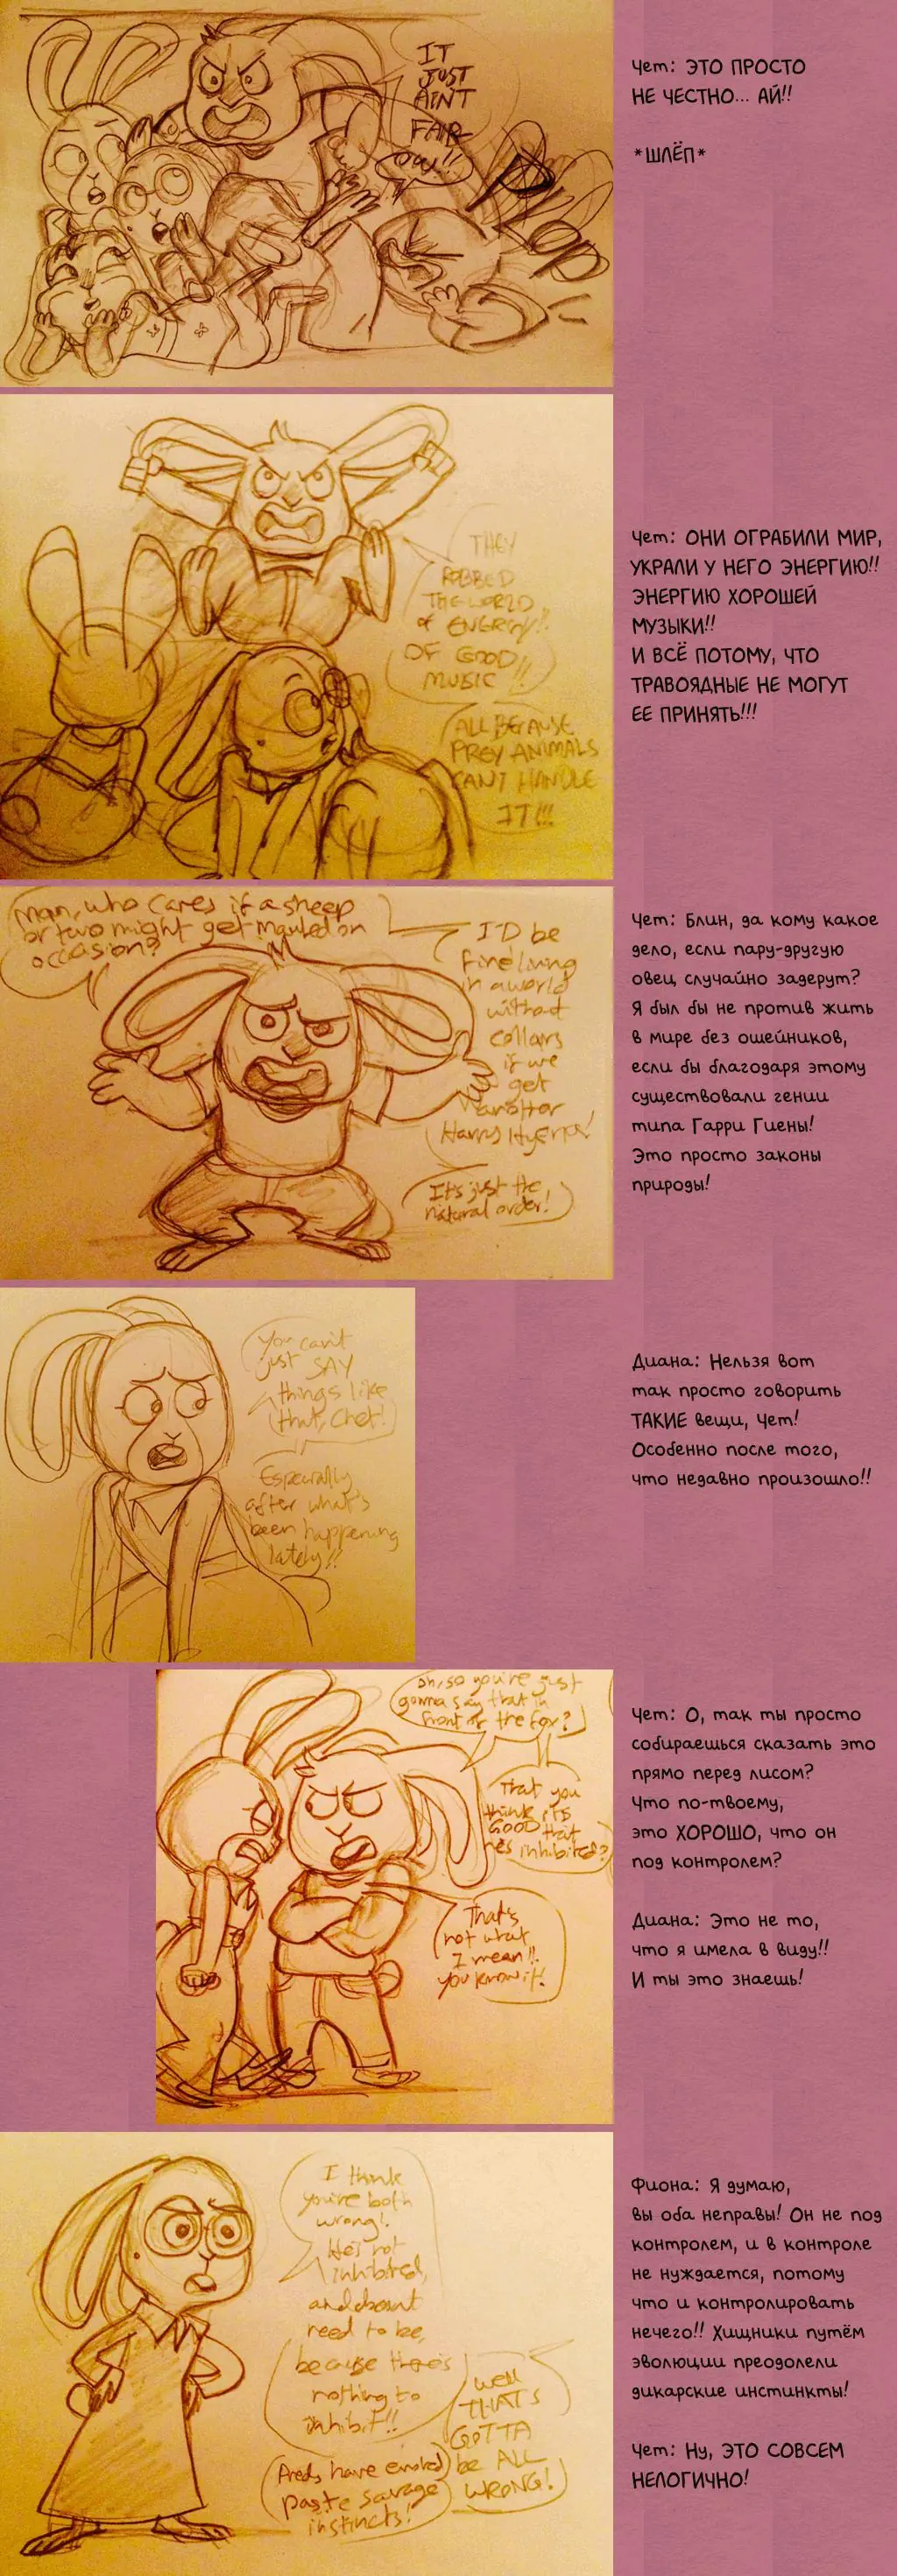 IT
JUST
AIN'T
FAIR
OW!!
PLOP
Чет: ЭТО ПРОСТО
НЕ ЧЕСТНО... АЙ!!
*ШЛЁП*
THEY
ROBBED
THE WORLD
OF ENERGY!!
OF GOOD
MUSIC!!
ALL BECAUSE
PREY ANIMALS
CAN'T HANDLE
IT!!!
Чет: ОНИ ОГРАБИЛИ МИР,
УКРАЛИ У НЕГО ЭНЕРГИЮ!!
ЭНЕРГИЮ ХОРОШЕЙ
МУЗЫКИ!!
И ВСЁ ПОТОМУ, ЧТО
ТРАВОЯДНЫЕ НЕ МОГУТ
ЕЕ ПРИНЯТЬ!!!
Man, who cares if a sheep
or two might get mauled on
occasion?
I'D be
fine living
in a world
without
collars
if we
get
another
Harry Hyena!
It's just the
natural order!
Чет: Блин, да кому какое
дело, если пару-другую
овец случайно задерут?
Я был бы не против жить
в мире без ошейников,
если бы благодаря этому
существовали гении
типа Гарри Гиены!
Это просто законы
природы!
You can't
just SAY
things like
that, Chet!
Especially
after what's
been happening
lately!!
Диана: Нельзя вот
так просто говорить
ТАКИЕ вещи, Чет!
Особенно после того,
что недавно произошло!!
Oh, so you're just
gonna say that in
front of the fox?
That you
think it's
GOOD that
he's inhibited?
That's
not what
I mean!!
you know it!
Чет: О, так ты просто
собираешься сказать это
прямо перед лисом?
Что по-твоему,
это ХОРОШО, что он
под контролем?
Диана: Это не то,
что я имела в виду!!
И ты это знаешь!
I think
you're both
wrong!
He's not
inhibited,
and doesnt
need to be,
because there's
nothing to
inhibit!!
Preds have evolved
past savage
instincts!
Well
THAT'S
GOTTA
be ALL
WRONG!
Фиона: Я думаю,
вы оба неправы! Он не под
контролем, и в контроле
не нуждается, потому
что и контролировать
нечего!! Хищники путём
эволюции преодолели
дикарские инстинкты!
Чет: Ну, ЭТО СОВСЕМ
НЕЛОГИЧНО!